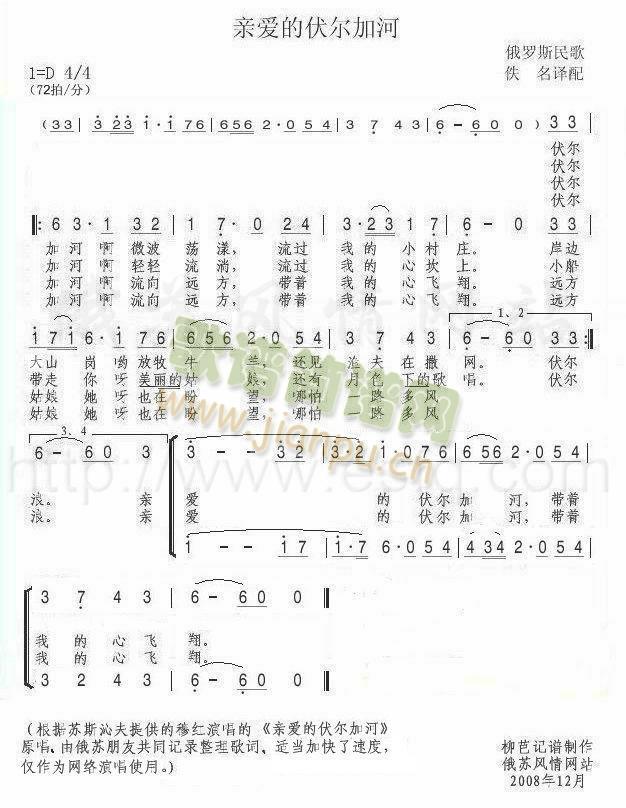 亲爱的伏尔加河
俄罗斯民歌
1=D 4/4
佚 名译配
(72拍/分)
(33 | 3 23 1·1 76 | 656 2·054 | 3 7 43 | 6 - 60 0) 33 |
伏尔
伏尔
伏尔
伏尔
‖: 6 3·1 32 | 1 7·0 24 | 3·23 1 7 | 6 - 0 33 |
加河啊微波 荡漾，流过 我的 小村 庄。 岸边
加河啊轻轻 流淌，流过 我的 心坎 上。 小船
加河啊流向 远方，带着 我的 心飞 翔。 远方
加河啊流向 远方，带着 我的 心飞 翔。 远方
1、2
171 6·1 76 | 656 2·054 | 3 7 43 | 6 - 60 33 :‖
大山 岗哟放牧 牛 兰，还见 渔夫 在撒 网。 伏尔
带走 你呀美丽的姑 娘，还有 月色 下的歌 唱。 伏尔
姑娘 她呀也在盼 望，哪怕 一路 多风
姑娘 她呀也在盼 望，哪怕 一路 多风
3、4
6 - 60 3 | 3 - - 32 | 3·2 1·076 | 656 2·054 |
浪。 亲 爱 的 伏尔加 河，带着
浪。 亲 爱 的 伏尔加 河，带着
1 - - 17 | 1·7 6·054 | 434 2·054 |
3 7 43 | 6 - 60 0 ‖
我的心飞 翔。
我的心飞 翔。
3 2 43 | 6 - 60 0 ‖
(根据苏斯沁夫提供的穆红演唱的《亲爱的伏尔加河》
原唱、由俄苏朋友共同记录整理歌词、适当加快了速度，
仅作为网络演唱使用。)
柳芭记谱制作
俄苏风情网站
2008年12月
歌谱简谱网
www.jianpu.cn